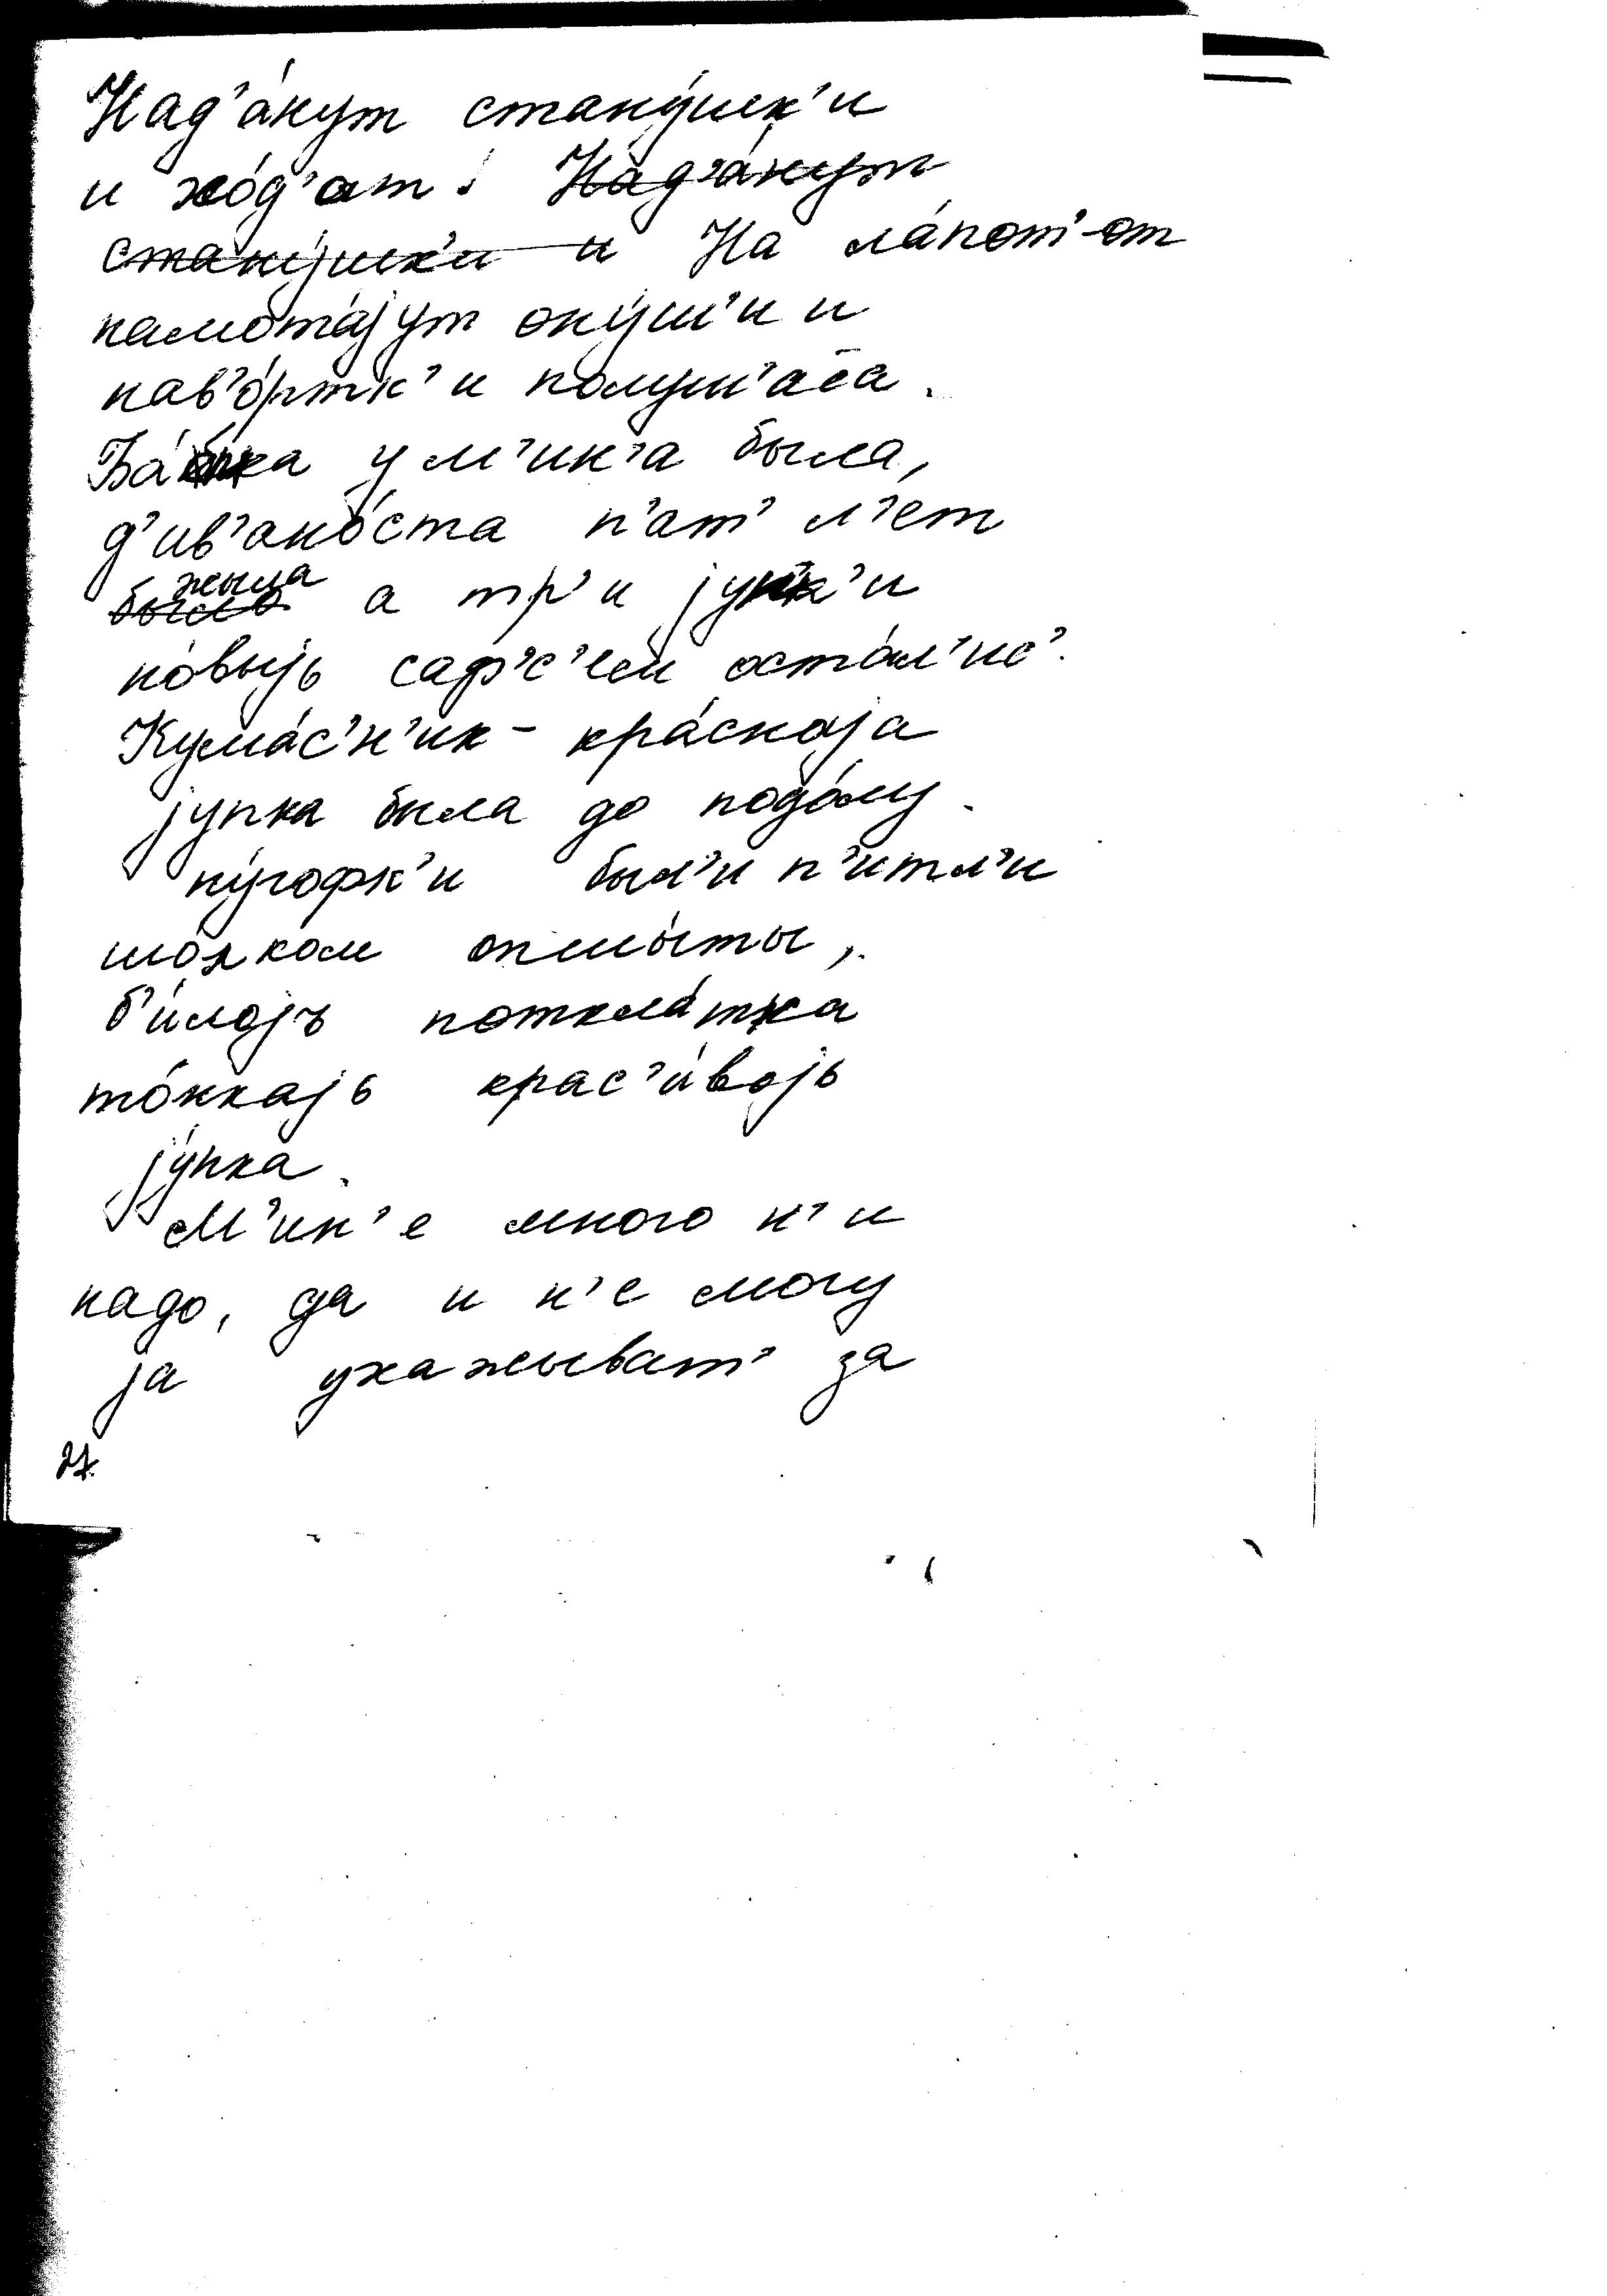 Над’а́нут стану́шк’и
и хо́д’ат. ~~Над’а́нут~~
~~стану́шк’и и~~ На ла́пот’-от
намота́јут ону́ш’и и
нав’о́ртк’и
Ба́бка у м’ин’а была,
д’ив’ано́ста п’ат’ л’ет
~~было~~ жыла а тр’и јупк’и
но́выјь оста́л’ис’.
Кума́с’н’ик - кра́снаја
јупка была до подо́лу.
пу́гофк’и был’и п’итл’и
шо́лком опшы́ты,
б’и́лојъ поткла́тка
то́нкајь крас’и́војь
јупка.
М’ин’е много н’и
надо, да и н’е могу
ја ухажыват’ за
27.